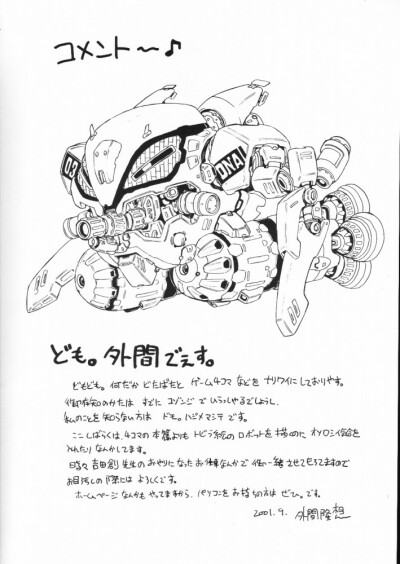 コメント〜♪
03
DNA
ども。外間でぇす。
どもども。何だか どたばたと ゲーム4コマ などを ナリワイに しております。
御存知のかたは すでに ゴゾンジ で いらっしゃるでしょうし、
私のことを知らない方は ドモ。ハジメマシテ です。
ここしばらくは、4コマの本篇よりも トビラ絵の ロボットを 描くのに オソロシイ
いれたり なんかしてます。
時々 吉田創先生の おやりになった お仕事なんかで 御一緒させてもらってますので
お目汚しの際には よろしくです。
ホームページなんかも やってますから、パソコンを お持ちの方は ぜひ。です。
2001.9. 外間隆